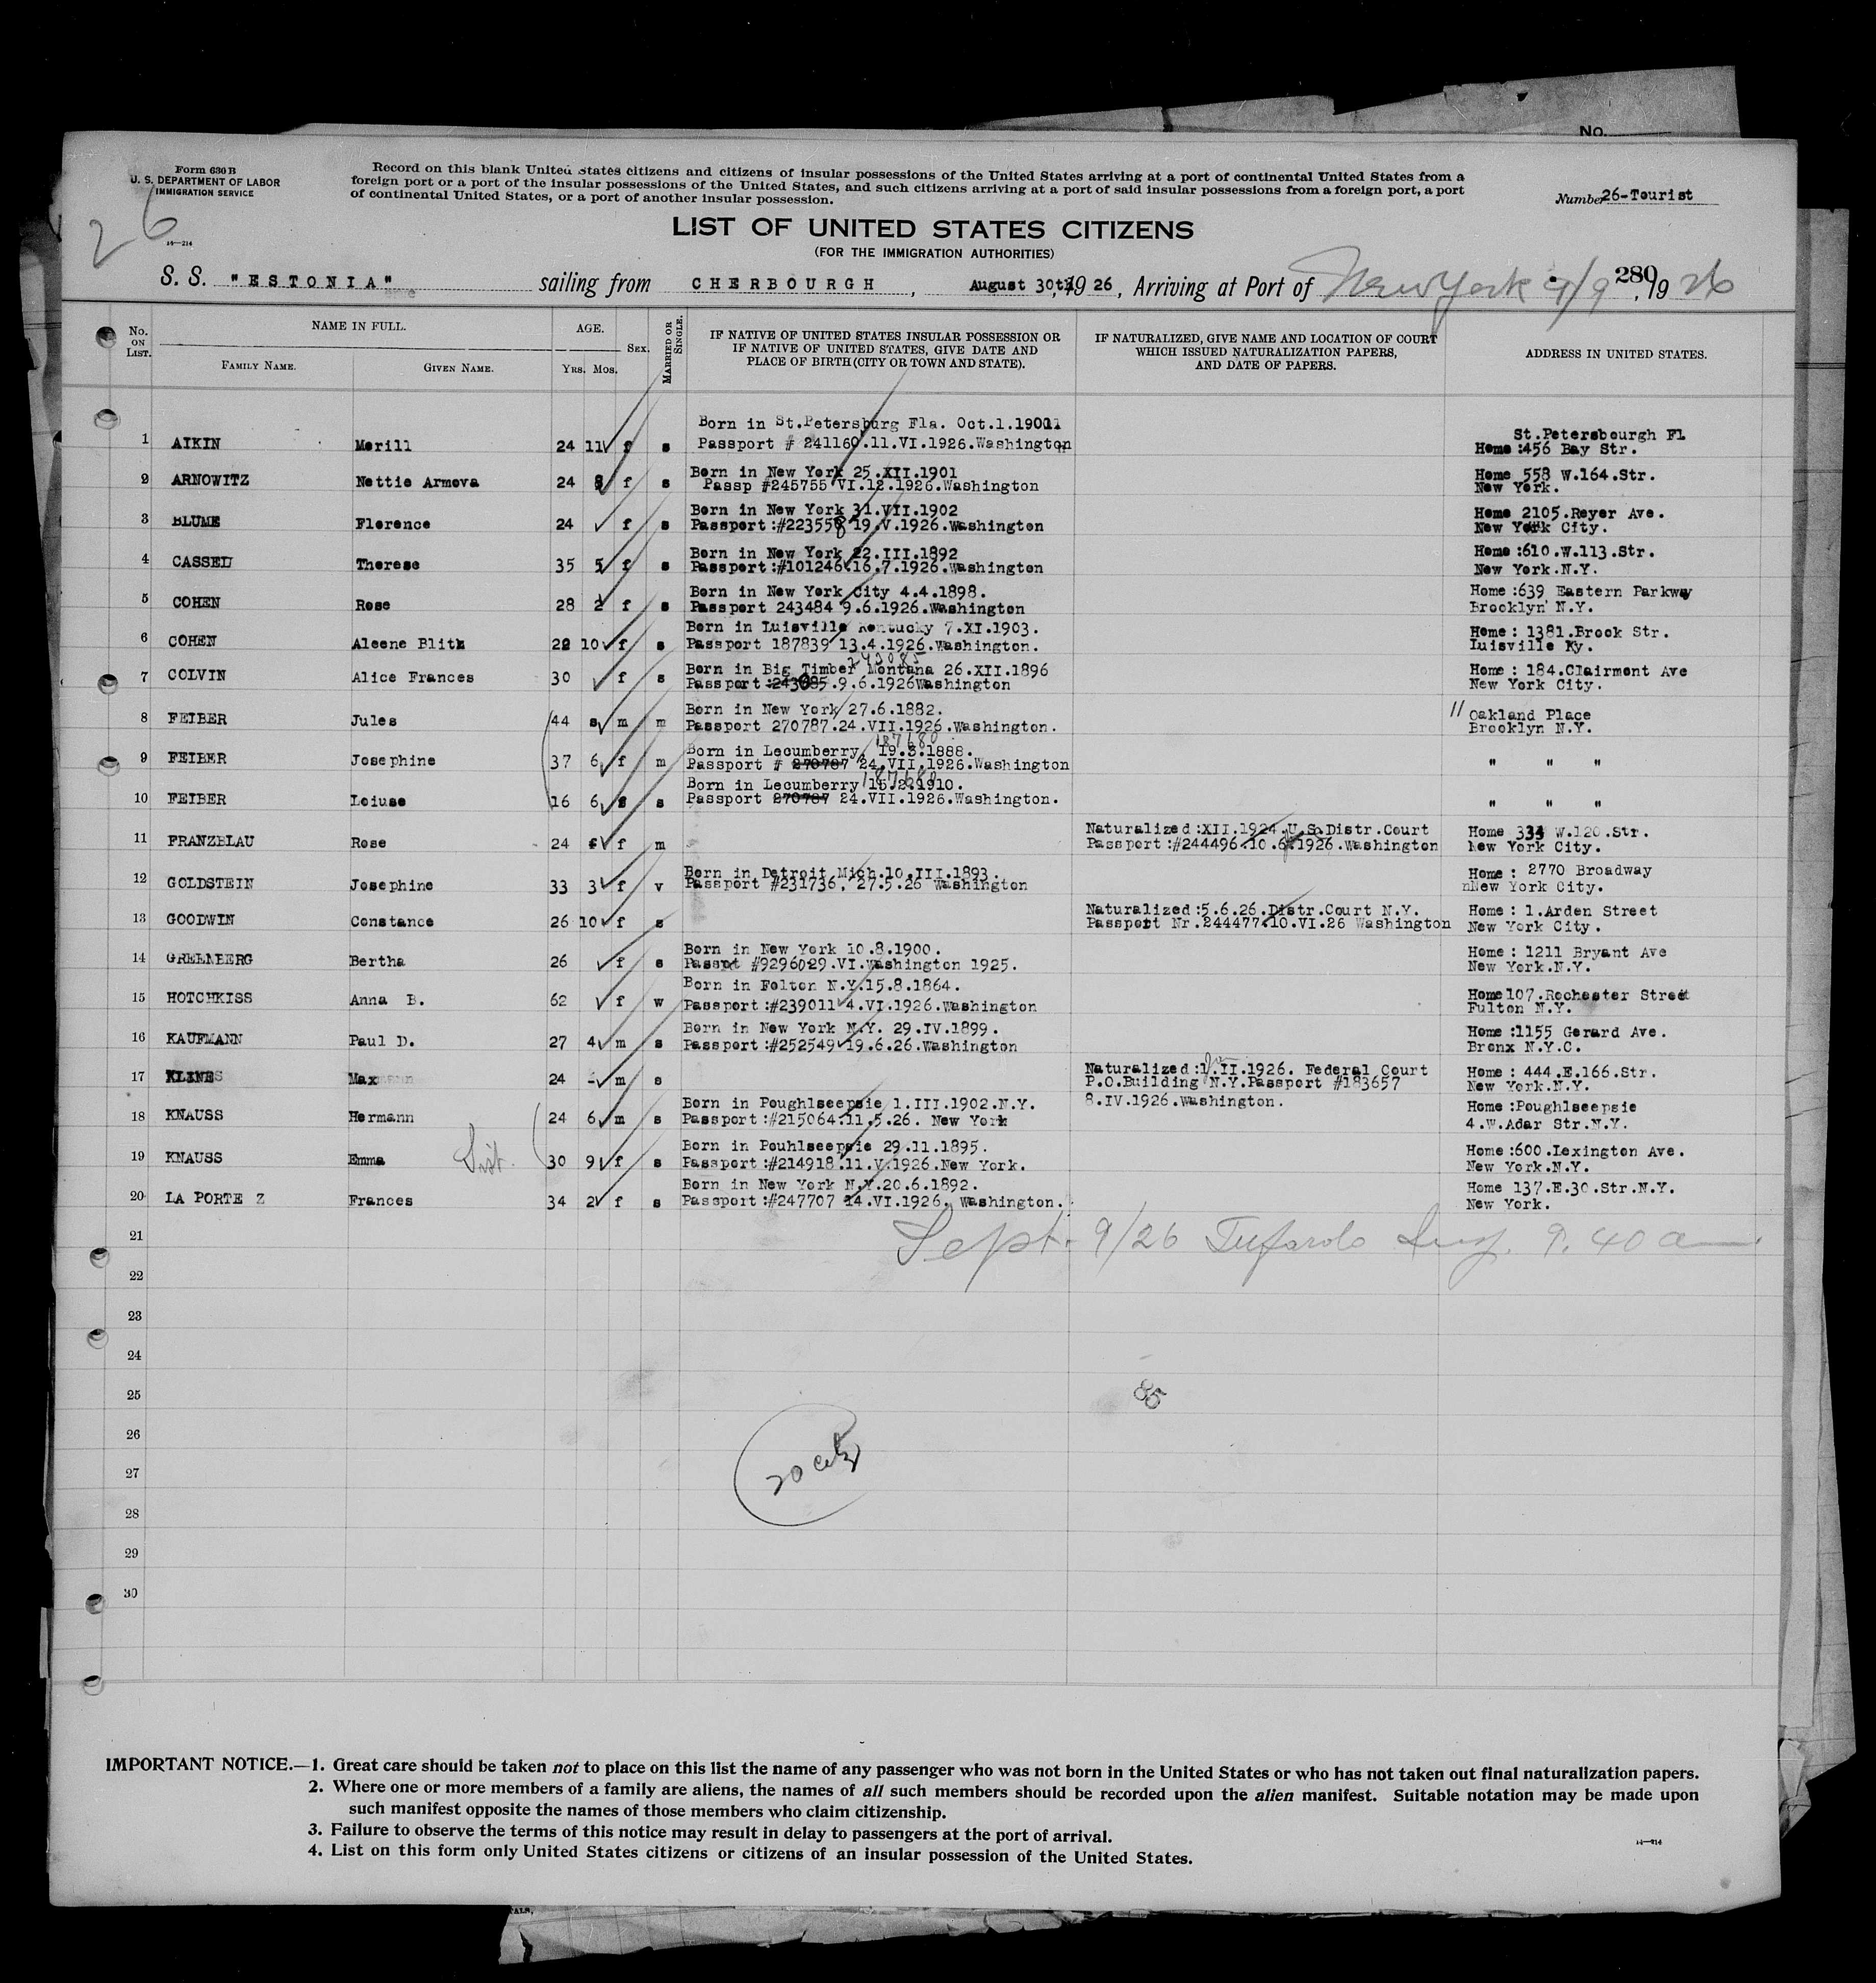 No.
Form 630 B
U. S. DEPARTMENT OF LABOR
IMMIGRATION SERVICE
14—214
26
Record on this blank United States citizens and citizens of insular possessions of the United States arriving at a port of continental United States from a
foreign port or a port of the insular possessions of the United States, and such citizens arriving at a port of said insular possessions from a foreign port, a port
of continental United States, or a port of another insular possession.
Number 26-Tourist
LIST OF UNITED STATES CITIZENS
(FOR THE IMMIGRATION AUTHORITIES)
280
S. S. "ESTONIA" sailing from CHERBOURGH, August 30th, 1926, Arriving at Port of New York 9/9, 1926
No. ON LIST.
NAME IN FULL.
FAMILY NAME.
GIVEN NAME.
AGE.
YRS. MOS.
SEX.
MARRIED OR SINGLE.
IF NATIVE OF UNITED STATES INSULAR POSSESSION OR
IF NATIVE OF UNITED STATES, GIVE DATE AND
PLACE OF BIRTH (CITY OR TOWN AND STATE).
IF NATURALIZED, GIVE NAME AND LOCATION OF COURT
WHICH ISSUED NATURALIZATION PAPERS,
AND DATE OF PAPERS.
ADDRESS IN UNITED STATES.
Born in St.Petersburg Fla. Oct.1.1901 St.Petersbourgh Fl
1 AIKIN Merill 24 11 f s Passport # 241160.11.VI.1926.Washington Home :456 Bay Str.
Born in New York 25.XII.1901 Home 558 W.164.Str.
2 ARNOWITZ Nettie Armova 24 8 f s Passp #245755 VI.12.1926.Washington New York.
Born in New York 31.VII.1902 Home 2105.Reyer Ave.
3 BLUME Florence 24 f s Passport:#223558 19.V.1926.Washington New York City.
Born in New York 22.III.1892 Home :610.W.113.Str.
4 CASSEL Therese 35 5 f s Passport:#101246.16.7.1926.Washington New York.N.Y.
Born in New York City 4.4.1898. Home :639 Eastern Parkway
5 COHEN Rose 28 2 f s Passport 243484 9.6.1926.Washington Brooklyn N.Y.
Born in Luisville Kentucky 7.XI.1903. Home : 1381.Brook Str.
6 COHEN Aleene Blitz 22 10 f s Passport 187839 13.4.1926.Washington. Luisville Ky.
243085
Born in Big Timber Montana 26.XII.1896 Home : 184.Clairmont Ave
7 COLVIN Alice Frances 30 f s Passport :243085.9.6.1926Washington New York City.
Born in New York 27.6.1882. 11 Oakland Place
8 FEIBER Jules 44 m m Passport 270787.24.VII.1926.Washington. Brooklyn N.Y.
187680
Born in Lecumberry 19.3.1888.
9 FEIBER Josephine 37 6 f m Passport # 270787 24.VII.1926.Washington " " "
187680
Born in Lecumberry 15.2.1910.
10 FEIBER Loiuse 16 6 s Passport 270787 24.VII.1926.Washington. " " "
Naturalized:XII.1924.U.S.Distr.Court Home 334 W.120.Str.
11 FRANZBLAU Rose 24 f m Passport:#244496.10.6.1926.Washington New York City.
Born in Detroit Mich.10.III.1893. Home : 2770 Broadway
12 GOLDSTEIN Josephine 33 3 f v Passport #231736, 27.5.26 Washington nNew York City.
Naturalized:5.6.26.Distr.Court N.Y. Home : 1.Arden Street
13 GOODWIN Constance 26 10 f s Passport Nr.244477.10.VI.26 Washington New York City.
Born in New York 10.8.1900. Home : 1211 Bryant Ave
14 GREENBERG Bertha 26 f s Passpt #9296029.VI.Washington 1925. New York.N.Y.
Born in Folton N.Y.15.8.1864. Home 107.Rochester Street
15 HOTCHKISS Anna B. 62 f w Passport:#239011 4.VI.1926.Washington Fulton N.Y.
Born in New York N.Y. 29.IV.1899. Home :1155 Gerard Ave.
16 KAUFMANN Paul D. 27 4 m s Passport:#252549 19.6.26.Washington Bronx N.Y.C.
Naturalized:1.II.1926. Federal Court Home : 444.E.166.Str.
17 KLINES Max 24 - m s P.O.Building N.Y.Passport #183657 New York.N.Y.
8.IV.1926.Washington.
Born in Poughlseepsie 1.III.1902.N.Y. Home :Poughlseepsie
18 KNAUSS Hermann 24 6 m s Passport:#215064.11.5.26. New York 4.W.Adar Str.N.Y.
Born in Pouhlseepsie 29.11.1895. Home :600.Lexington Ave.
19 KNAUSS Emma Sist. 30 9 f s Passport:#214918.11.V.1926.New York. New York.N.Y.
Born in New York N.Y.20.6.1892. Home 137.E.30.Str.N.Y.
20 LA PORTE Z Frances 34 2 f s Passport:#247707 14.VI.1926. Washington. New York.
21 Sept. 9/26 Insp. 9.40 am
22
23
24
25
85
26
27
20
28
29
30
IMPORTANT NOTICE.—1. Great care should be taken not to place on this list the name of any passenger who was not born in the United States or who has not taken out final naturalization papers.
2. Where one or more members of a family are aliens, the names of all such members should be recorded upon the alien manifest. Suitable notation may be made upon
such manifest opposite the names of those members who claim citizenship.
3. Failure to observe the terms of this notice may result in delay to passengers at the port of arrival.
4. List on this form only United States citizens or citizens of an insular possession of the United States.
14—214